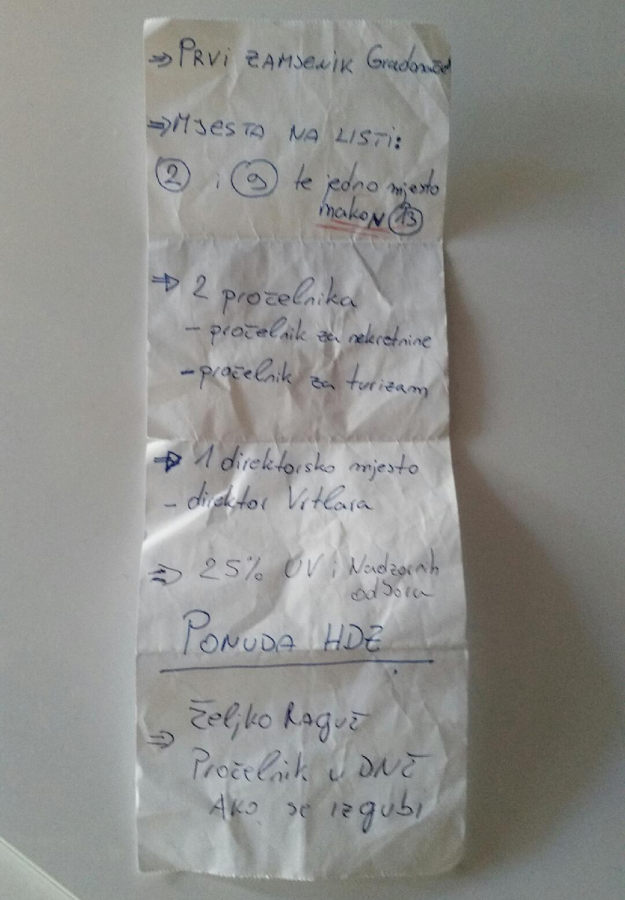 ⇒ PRVI ZAMJENIK Gradonač
⇒ MJESTA NA LISTI:
2 i 9 te jedno mjesto
nakon 13
⇒ 2 pročelnika
- pročelnik za nekretnine
- pročelnik za turizam
⇒ 1 direktorsko mjesto
- direktor Vrtlara
⇒ 25% UV i Nadzornih
odbora
PONUDA HDZ
⇒ Željko Raguž
Pročelnik u DNŽ
AKO se izgubi